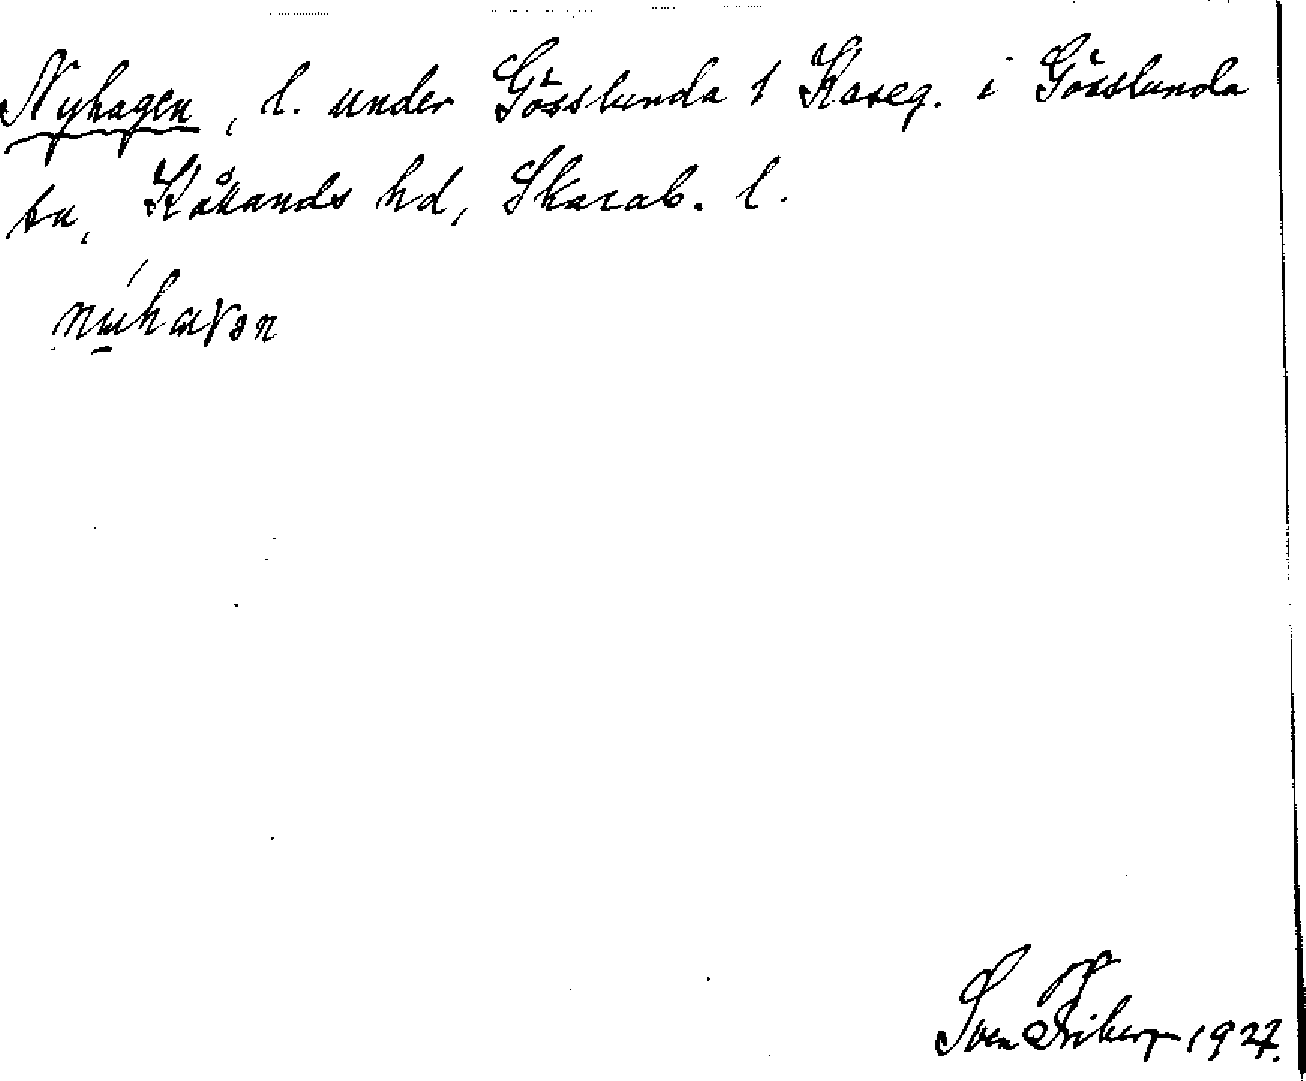 Nyhagen, l. under Gösslunda 1 Kaseg. i Gösslunda
sn, Kållands hd, Skarab. l.
Sven Friberg 1927.